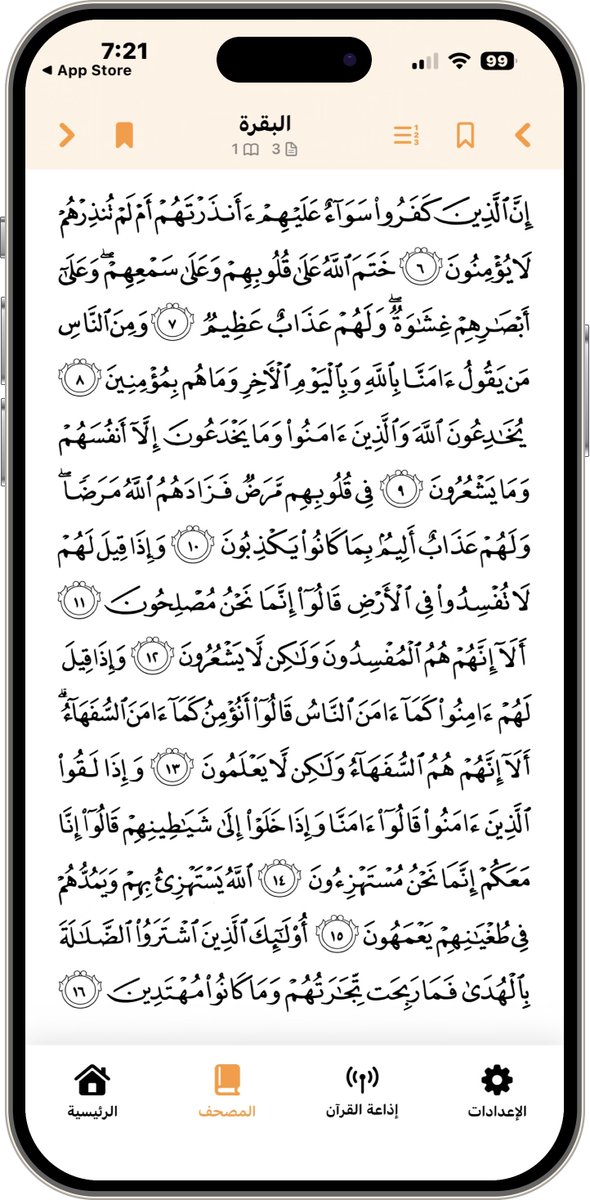 7:21
99
◀ App Store
البقرة
1 3
إِنَّ ٱلَّذِينَ كَفَرُوا۟ سَوَآءٌ عَلَيْهِمْ ءَأَنذَرْتَهُمْ أَمْ لَمْ تُنذِرْهُمْ
لَا يُؤْمِنُونَ ٦ خَتَمَ ٱللَّهُ عَلَىٰ قُلُوبِهِمْ وَعَلَىٰ سَمْعِهِمْ ۖ وَعَلَىٰٓ
أَبْصَٰرِهِمْ غِشَٰوَةٌ ۖ وَلَهُمْ عَذَابٌ عَظِيمٌ ٧ وَمِنَ ٱلنَّاسِ
مَن يَقُولُ ءَامَنَّا بِٱللَّهِ وَبِٱلْيَوْمِ ٱلْـَٔاخِرِ وَمَا هُم بِمُؤْمِنِينَ ٨
يُخَٰدِعُونَ ٱللَّهَ وَٱلَّذِينَ ءَامَنُوا۟ وَمَا يَخْدَعُونَ إِلَّآ أَنفُسَهُمْ
وَمَا يَشْعُرُونَ ٩ فِى قُلُوبِهِم مَّرَضٌ فَزَادَهُمُ ٱللَّهُ مَرَضًا ۖ
وَلَهُمْ عَذَابٌ أَلِيمٌۢ بِمَا كَانُوا۟ يَكْذِبُونَ ١٠ وَإِذَا قِيلَ لَهُمْ
لَا تُفْسِدُوا۟ فِى ٱلْأَرْضِ قَالُوٓا۟ إِنَّمَا نَحْنُ مُصْلِحُونَ ١١
أَلَآ إِنَّهُمْ هُمُ ٱلْمُفْسِدُونَ وَلَٰكِن لَّا يَشْعُرُونَ ١٢ وَإِذَا قِيلَ
لَهُمْ ءَامِنُوا۟ كَمَآ ءَامَنَ ٱلنَّاسُ قَالُوٓا۟ أَنُؤْمِنُ كَمَآ ءَامَنَ ٱلسُّفَهَآءُ ۗ
أَلَآ إِنَّهُمْ هُمُ ٱلسُّفَهَآءُ وَلَٰكِن لَّا يَعْلَمُونَ ١٣ وَإِذَا لَقُوا۟
ٱلَّذِينَ ءَامَنُوا۟ قَالُوٓا۟ ءَامَنَّا وَإِذَا خَلَوْا۟ إِلَىٰ شَيَٰطِينِهِمْ قَالُوٓا۟ إِنَّا
مَعَكُمْ إِنَّمَا نَحْنُ مُسْتَهْزِءُونَ ١٤ ٱللَّهُ يَسْتَهْزِئُ بِهِمْ وَيَمُدُّهُمْ
فِى طُغْيَٰنِهِمْ يَعْمَهُونَ ١٥ أُو۟لَٰٓئِكَ ٱلَّذِينَ ٱشْتَرَوُا۟ ٱلضَّلَٰلَةَ
بِٱلْهُدَىٰ فَمَا رَبِحَت تِّجَٰرَتُهُمْ وَمَا كَانُوا۟ مُهْتَدِينَ ١٦
الإعدادات
إذاعة القرآن
المصحف
الرئيسية